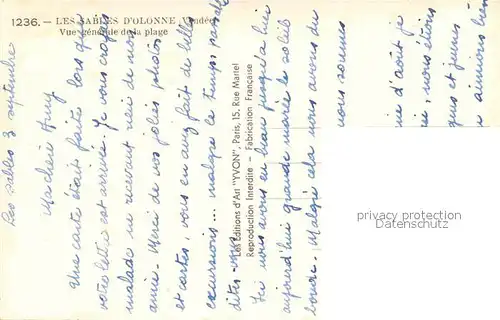 1236. — LES SABLES D'OLONNE (Vendée)
Vue générale de la plage
Les Editions d'Art "YVON", Paris, 15, Rue Martel
Reproduction Interdite — Fabrication Française
Les Sables 3 septembre
Ma chère
Une carte était faite lorsque
votre lettre est arrivée. Je vous croyais
malade ne recevant rien de nos
amie. Merci de vos jolies photos
et cartes, vous en avez fait de belles
excursions... malgré le temps, paraît
dites-vous
Ici nous avons eu beau jusqu'à hier
aujourd'hui grande marée le soleil
boude. Malgré cela nous avons du
nous sommes
d'août je
nous étions
et jeunes
aimions bien
privacy protection
Datenschutz